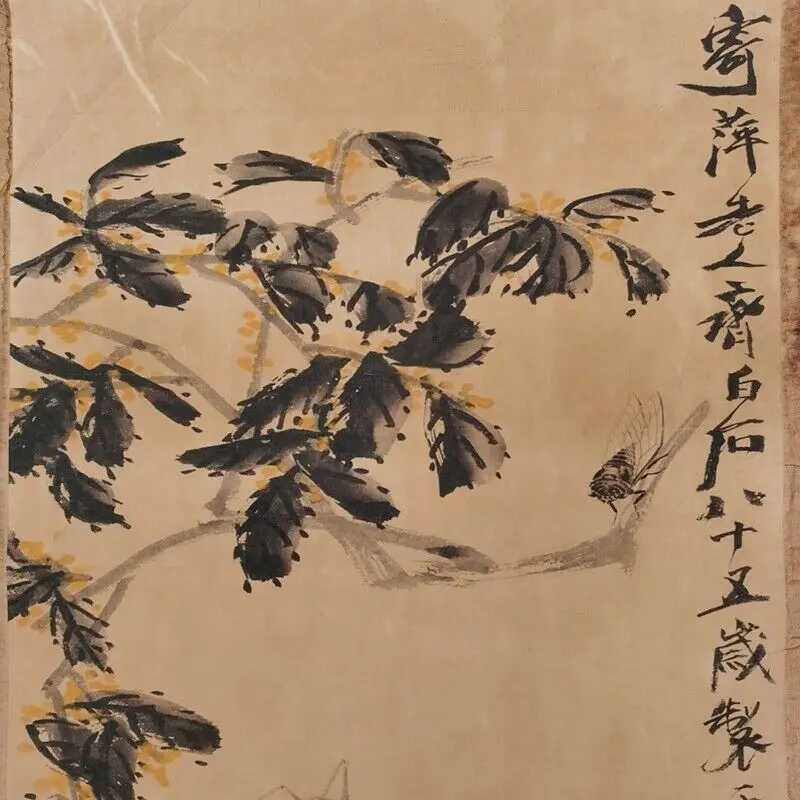 寄萍老人齊白石八十五歲製